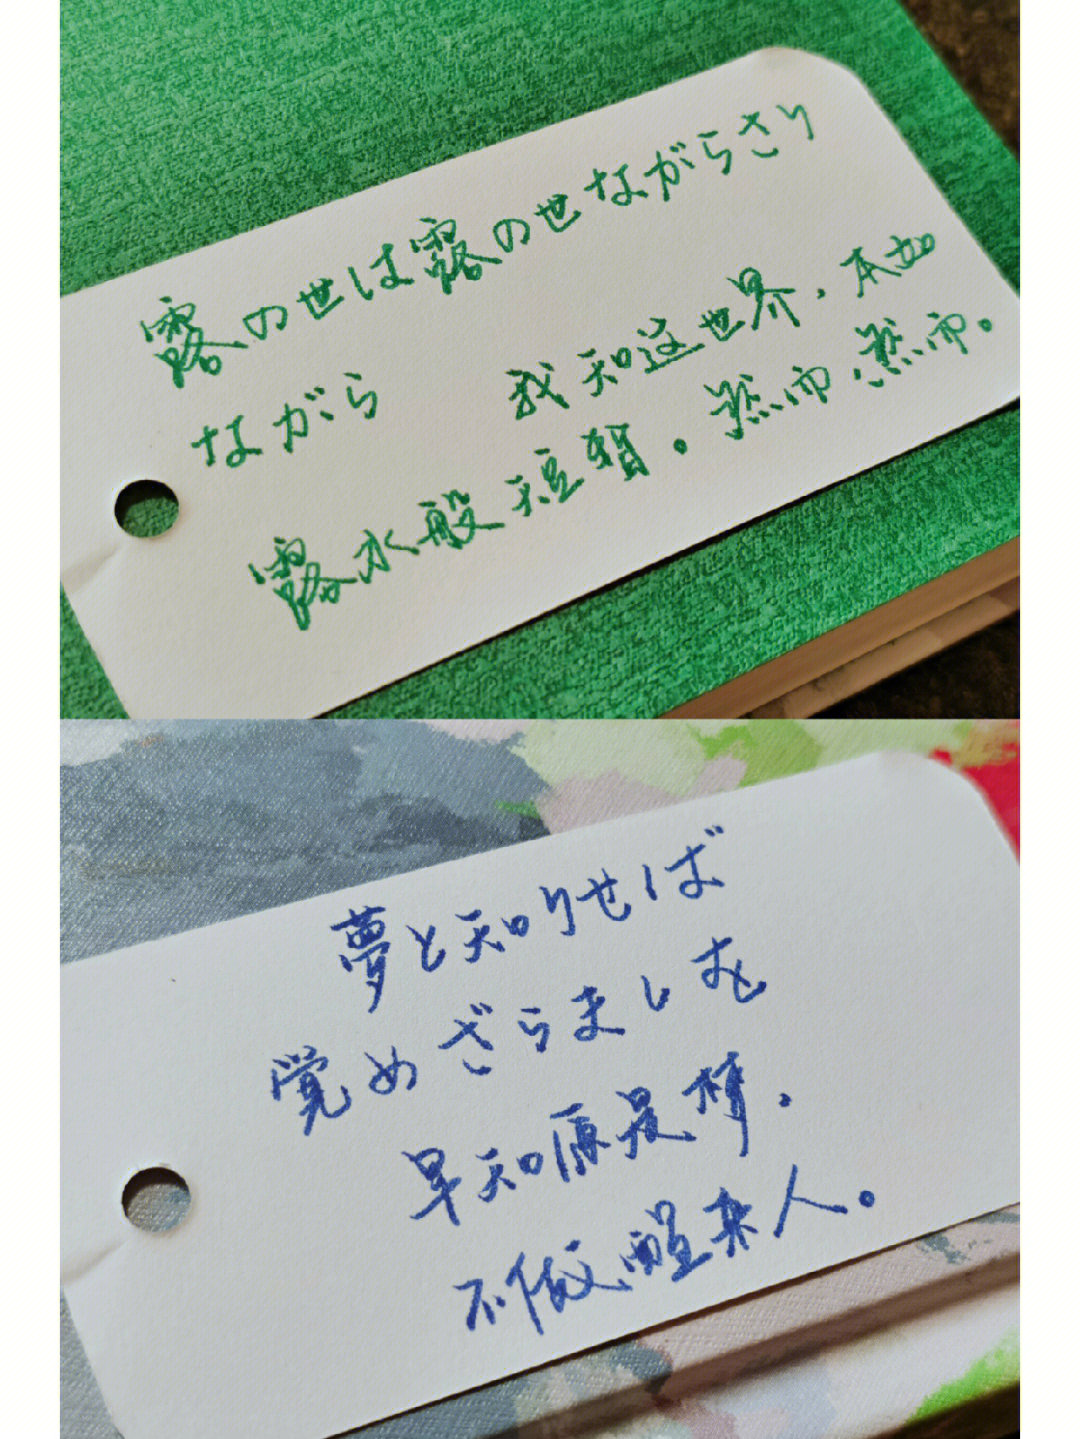 露の世は露の世ながらさり
ながら
我知这世界，本如
露水般短暂。然而，然而。
夢と知りせば
覚めざらましを
早知原是梦，
不做醒来人。